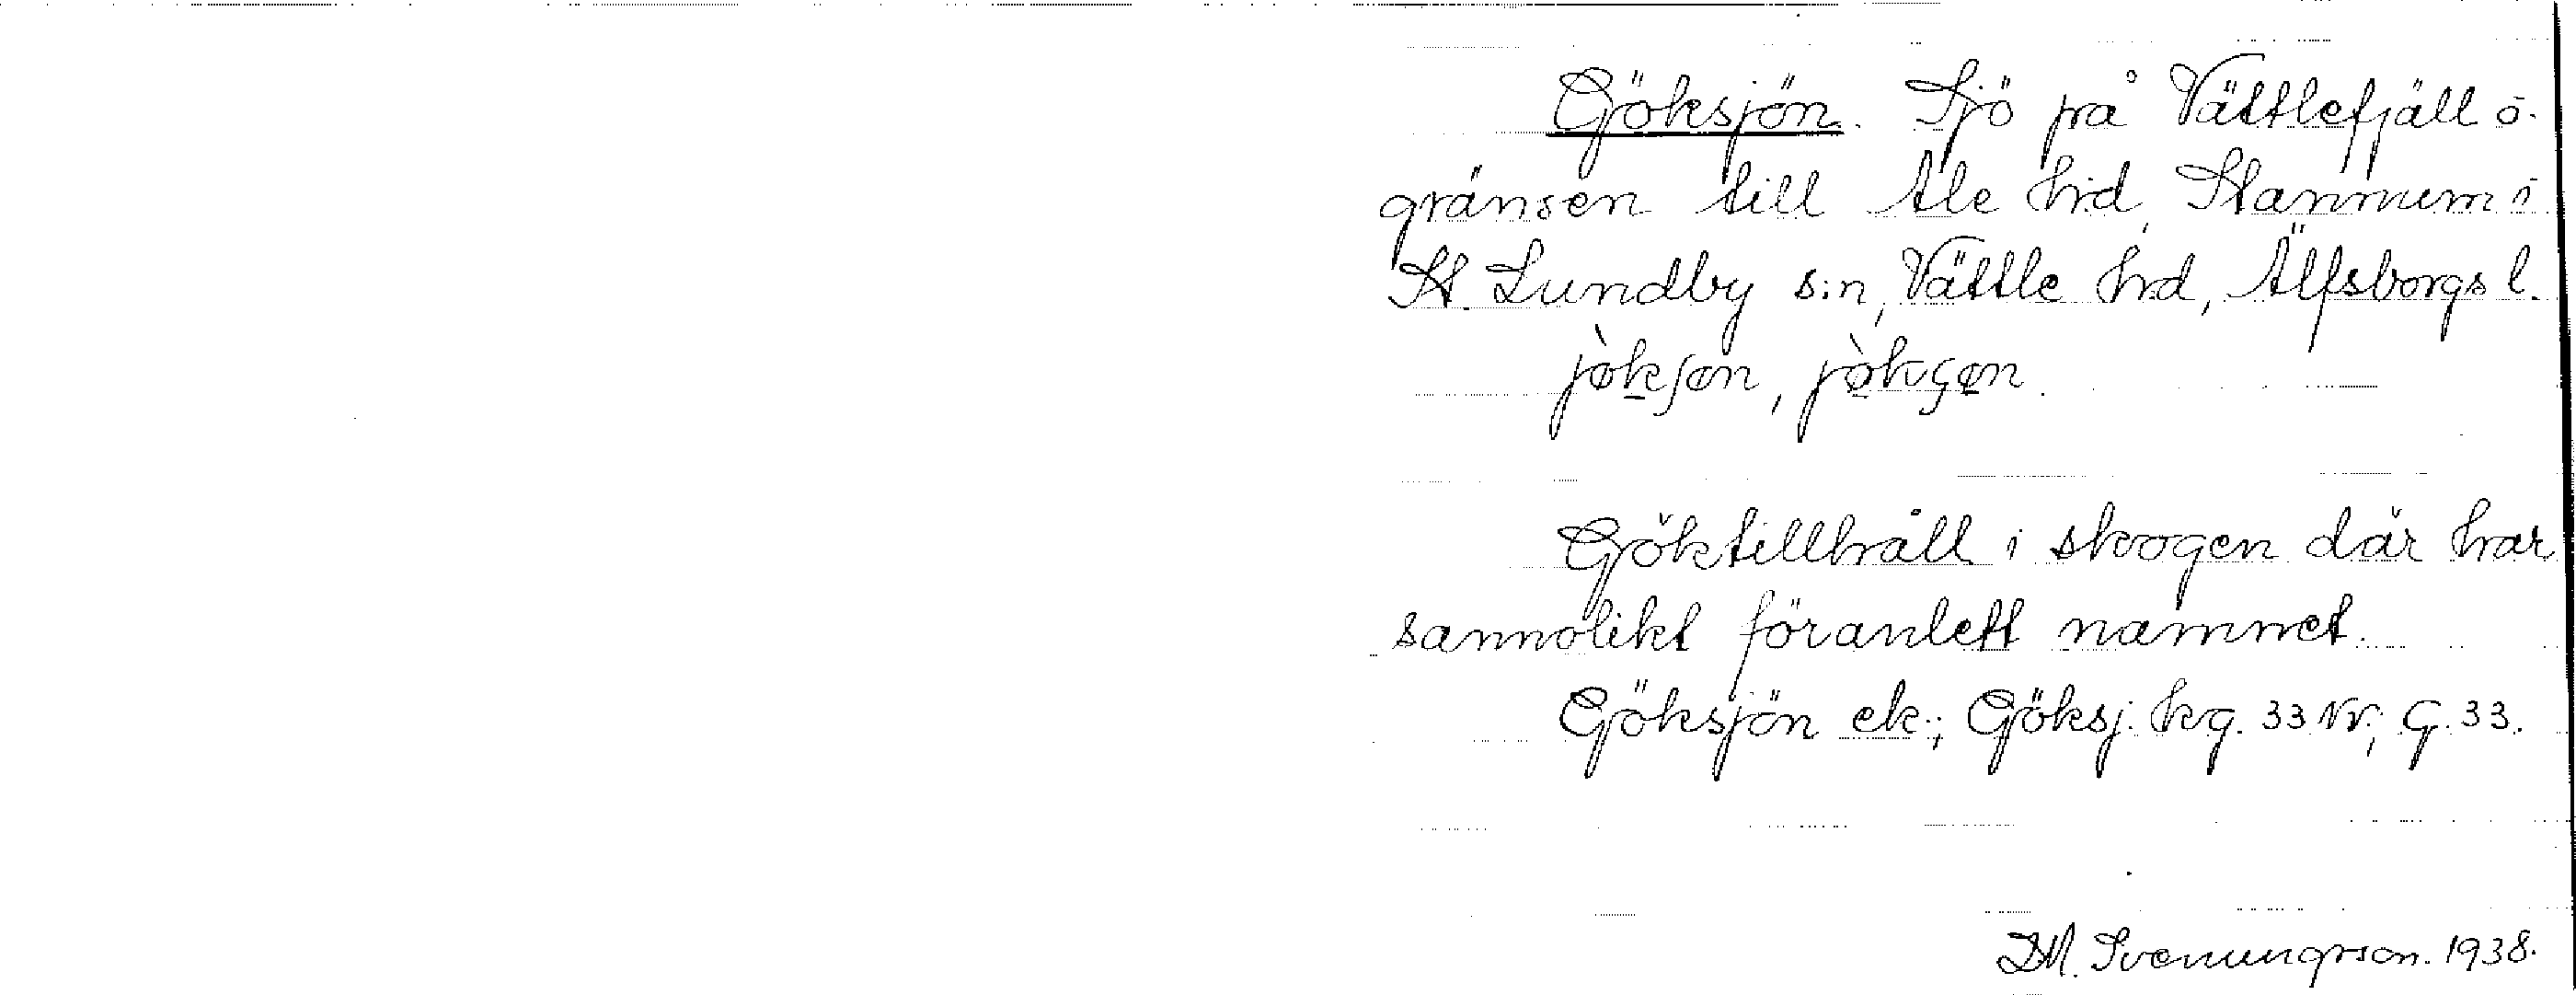 Göksjön. Sjö på Vättlefjäll ö.
gränsen till Ale hrd, Stannum i
St. Lundby s:n, Vättle hrd, Älfsborgs l.
jòkʃøn, jòkçøn.
Göktillhåll i skogen där har
sannolikt föranlett namnet.
Göksjön ek.; Göksj. kg. 33 NV.; G. 33.
Svenungsson. 1938.